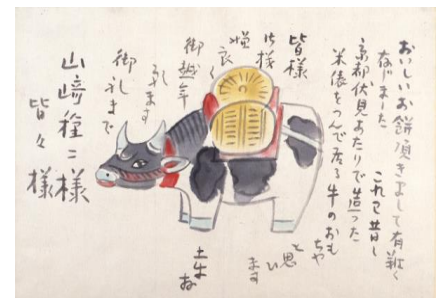 おいしいお餅頂きまして有難く
存じました
これで昔し
京都伏見あたりで造った
米俵をつんで居る牛のおも
ちや
と思
ひ
ます
皆様
御越年
御礼まで
山﨑種二様
皆々様
土牛